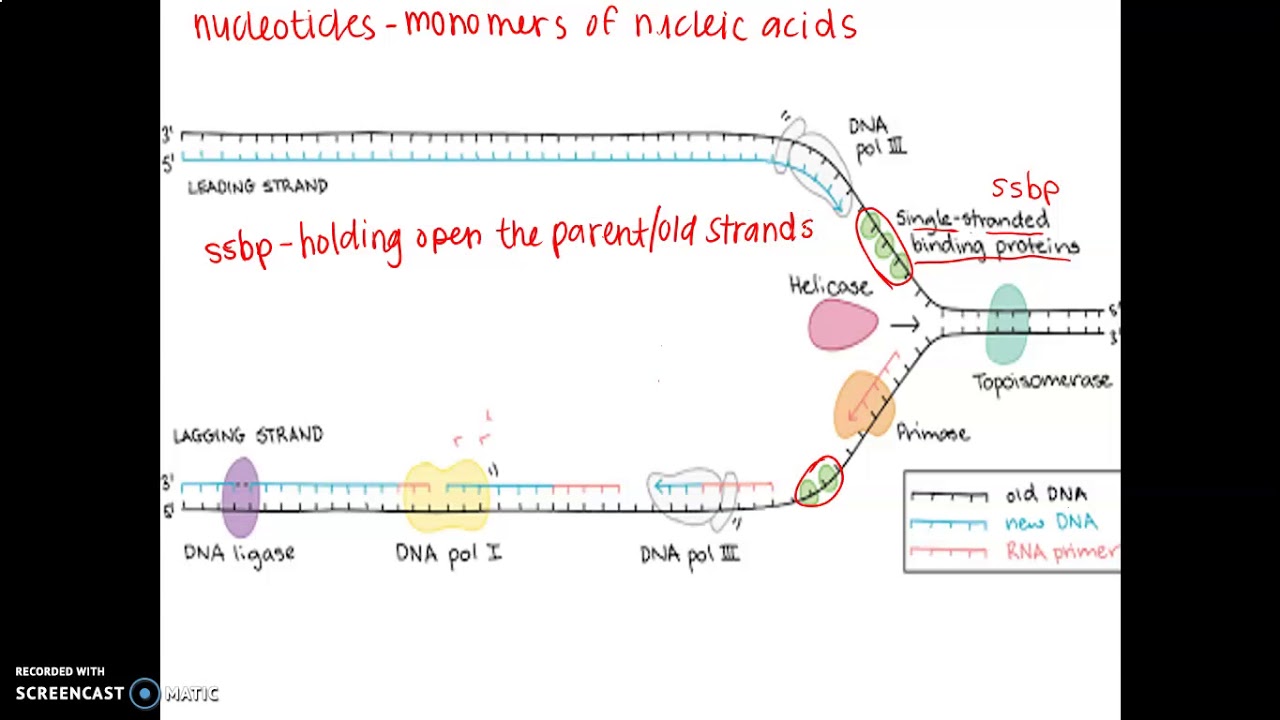 nucleotides - monomers of nucleic acids
3'
5'
LEADING STRAND
DNA
pol III
ssbp
Single-stranded
binding proteins
ssbp - holding open the parent/old strands
Helicase
5'
3'
Topoisomerase
Primase
LAGGING STRAND
3'
5'
DNA ligase
DNA pol I
DNA pol III
old DNA
new DNA
RNA primer
RECORDED WITH
SCREENCAST MATIC